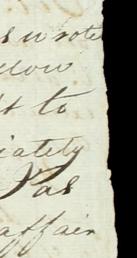 wrote
llow
t to
iately
as
affair